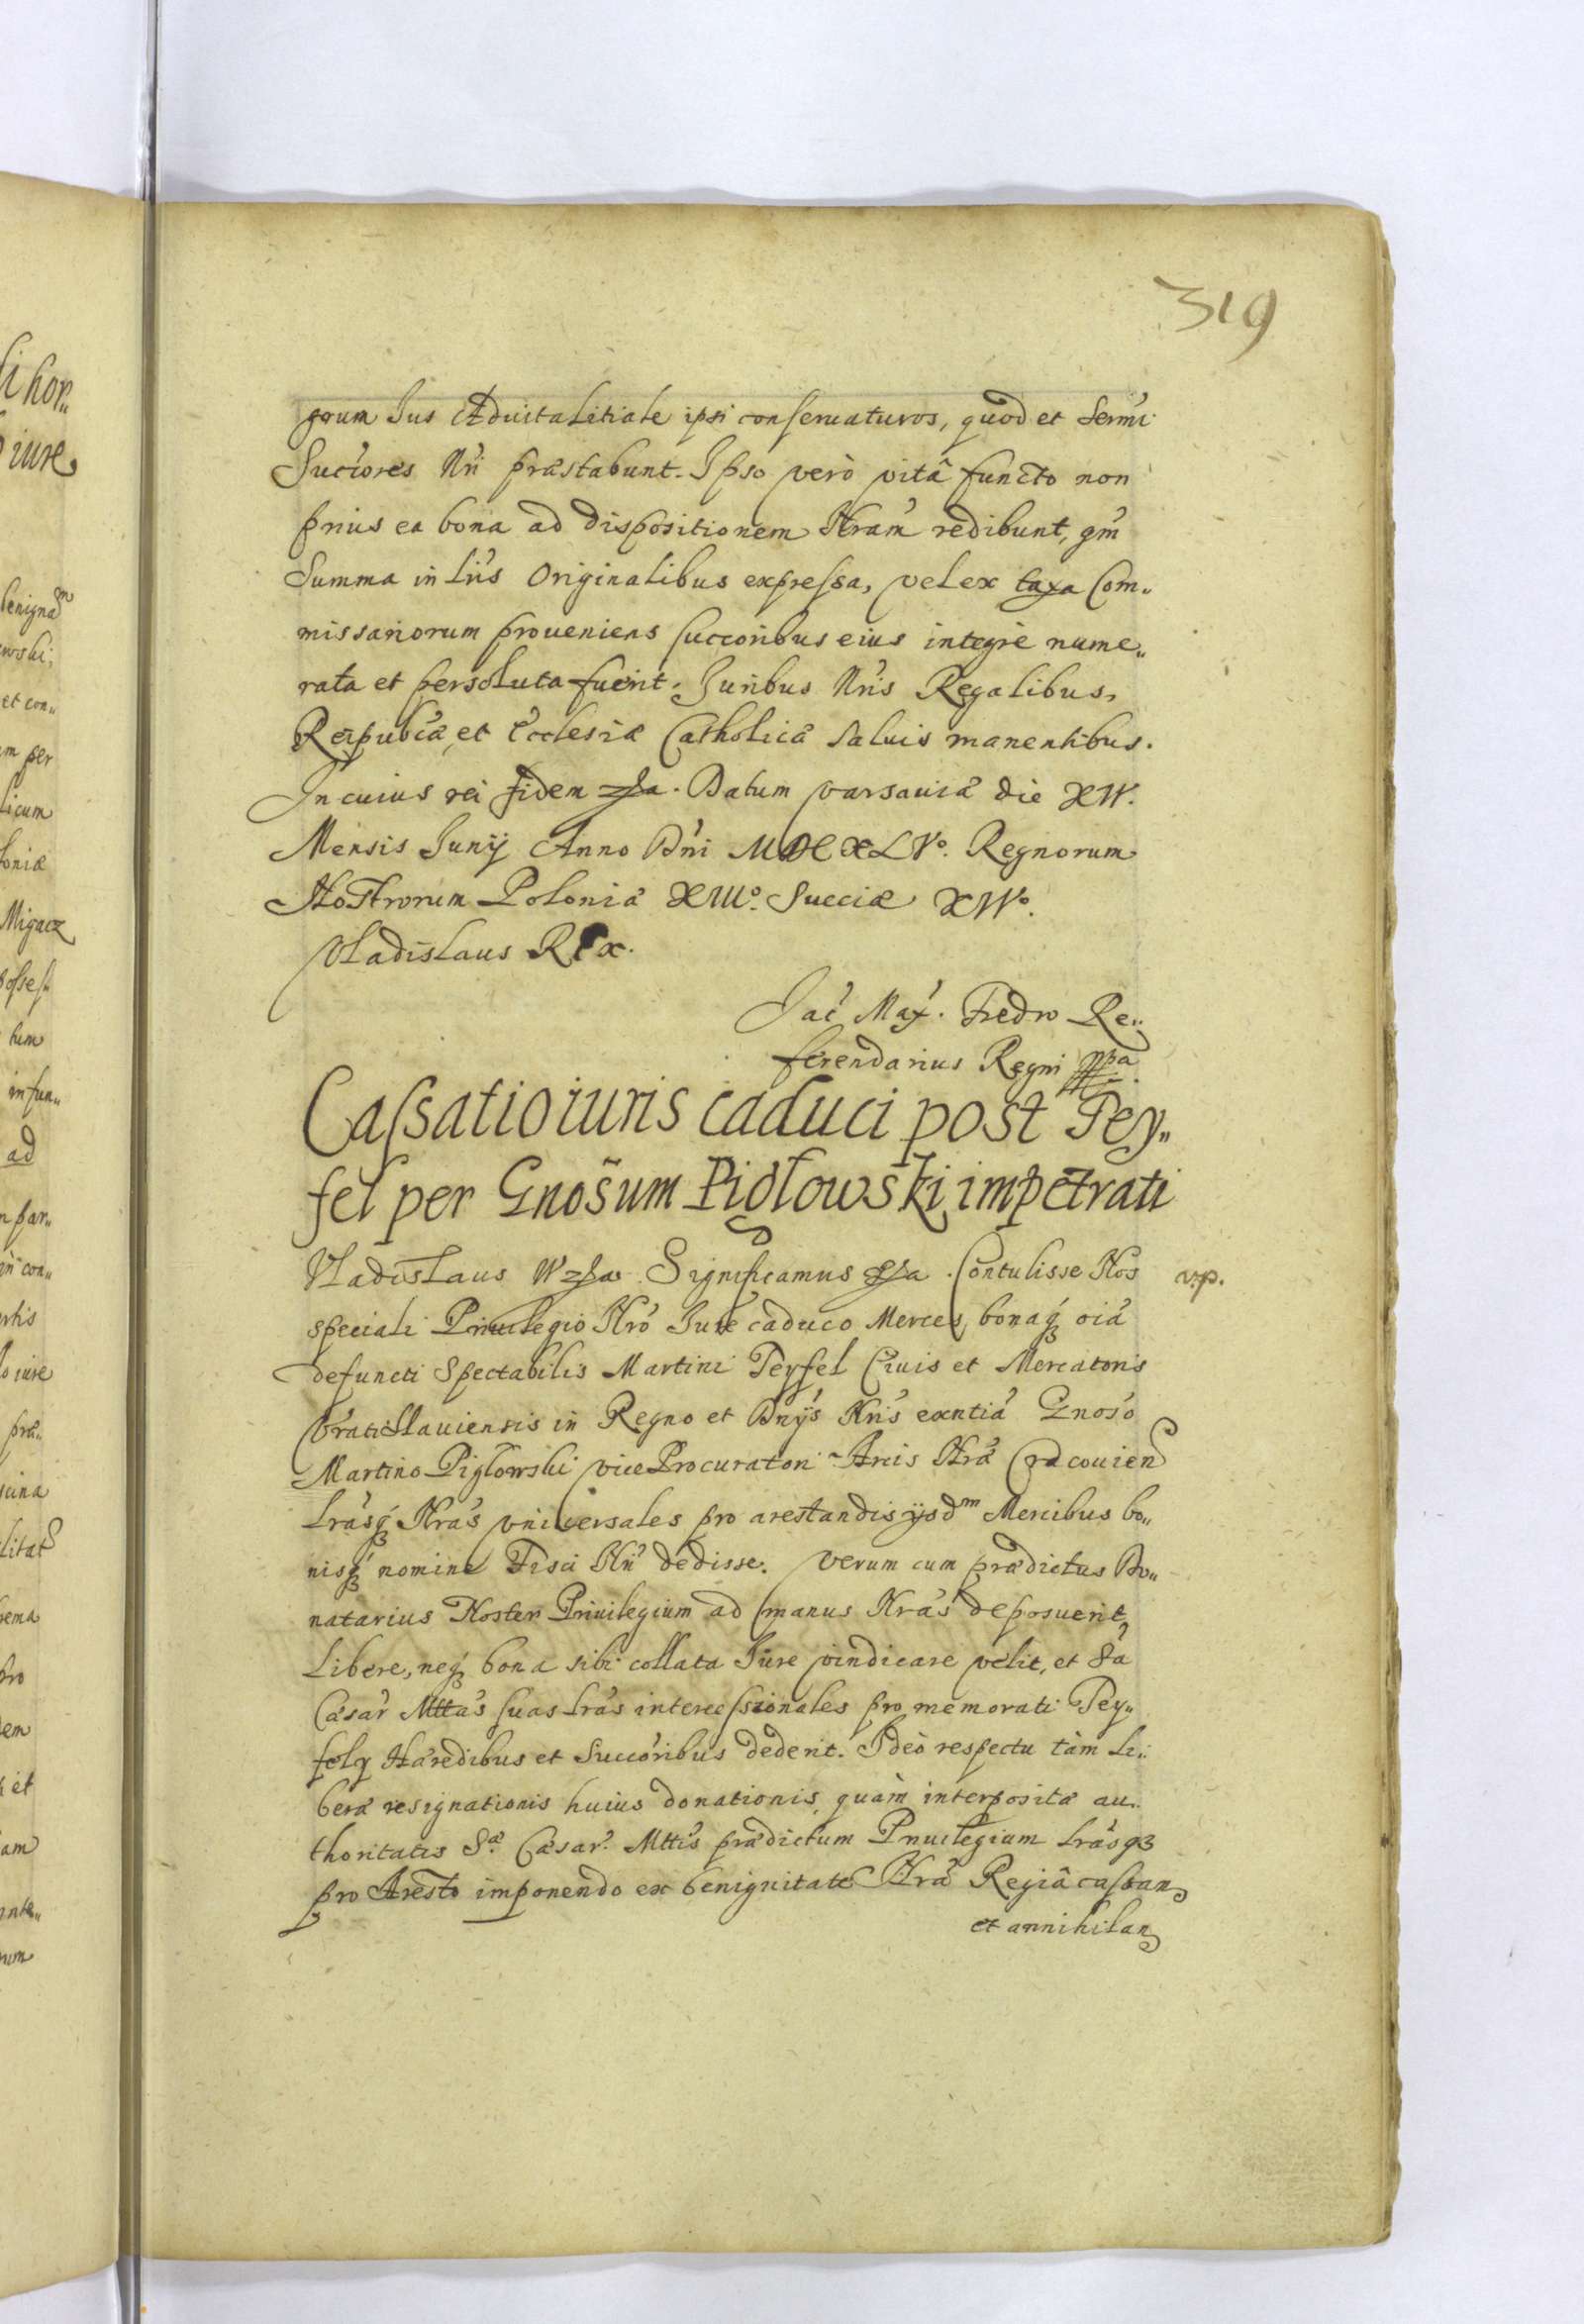 319
Jus Aduitalitiale ipsi conseruaturos, quod et Sermi
Succores Nri præstabunt. Ipso verò vitâ functo non
prius ea bona ad dispositionem Nram redibunt, qm
Summa in Lris Originalibus expressa, vel ex taxa Com„
missariorum proueniens succoribus eius integrè nume„
rata et persoluta fuerit. Juribus Nris Regalibus,
Reipubcæ, et Ecclesiæ Catholicæ saluis manentibus.
In cuius rei fidem. Datum Varsauiæ die XIV.
Mensis Junij Anno Dni MDCXLVº. Regnorum
Nostrorum Poloniæ XIIIº. Sueciæ XIVº.
Vladislaus Rex.
Jac Max. Fredro Re„
ferendarius Regni mpa.
Cassatio iuris caduci post Pey„
fel per Gnosum Piglowski impetrati
Vladislaus IV. Significamus. Contulisse Nos
v.p.
speciali Priuilegio Nro Jure caduco Merces, bonaq oia
defuncti Spectabilis Martini Peyfel Ciuis et Mercatoris
Vratislauiensis in Regno et Dnijs Nris exntia Gnoso
Martino Piglowski vice Procuratori Arcis Nræ Cracouien
Lrasq Nras vniuersales pro arestandis ijsdm Mercibus bo„
nisq nomine Fisci Nri dedisse. Verum cum prædictus Do„
natarius Noster Priuilegium ad manus Nras deposuerit
Libere, neq bona sibi collata Jure vindicare velit, et Sa
Cæsar Mttas suas Lras intercessionales pro memorati Pey„
fely Hæredibus et Succoribus dederit. Ideò respectu tàm Li„
beræ resignationis huius donationis, quàm interpositæ au„
thoritatis Sæ Cæsar. Mttis prædictum Priuilegium Lrasq
pro Aresto imponendo ex benignitate Nra Regiâ cassan
et annihilan